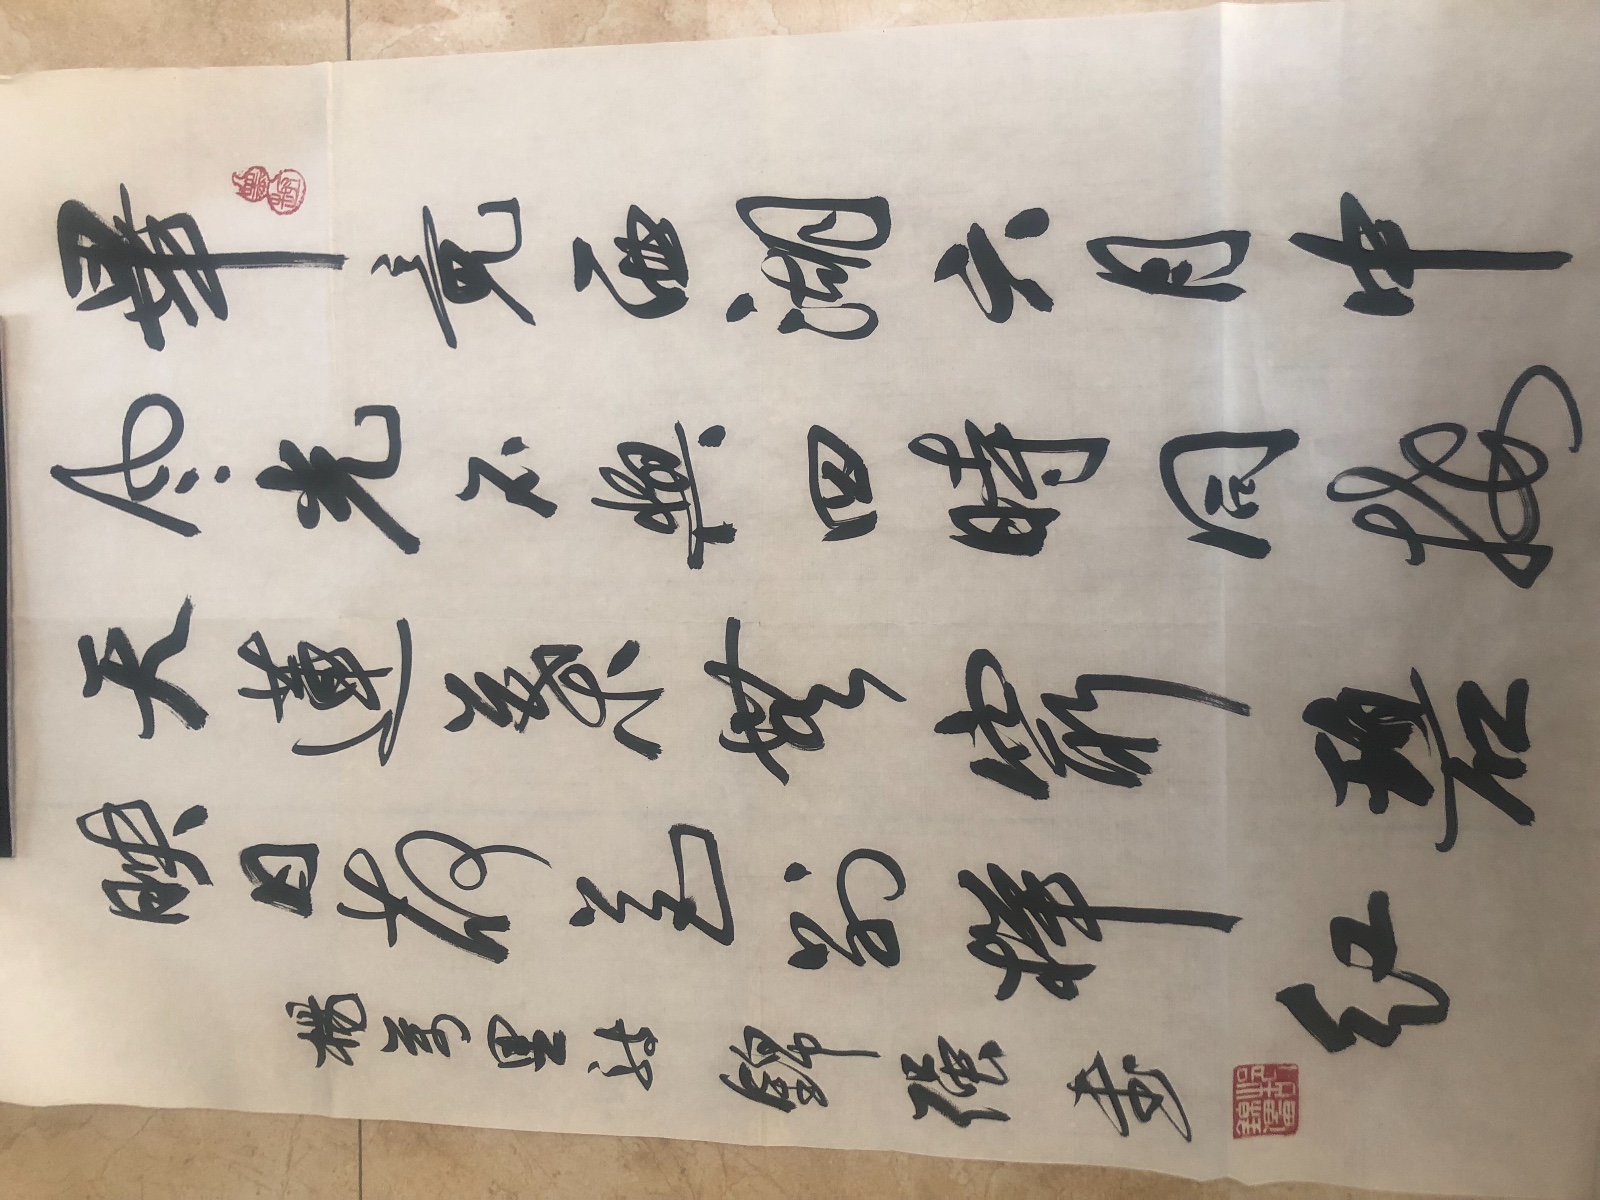 畢竟西湖六月中
风光不與四時同接
天蓮葉無窮碧
映日荷花別樣红
楊萬里诗 錦强书
墨趣